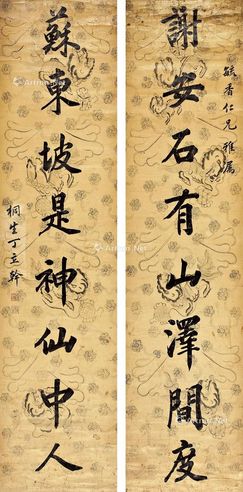 毓香仁兄雅属
谢安石有山澤間度
蘇東坡是神仙中人
桐生丁立幹